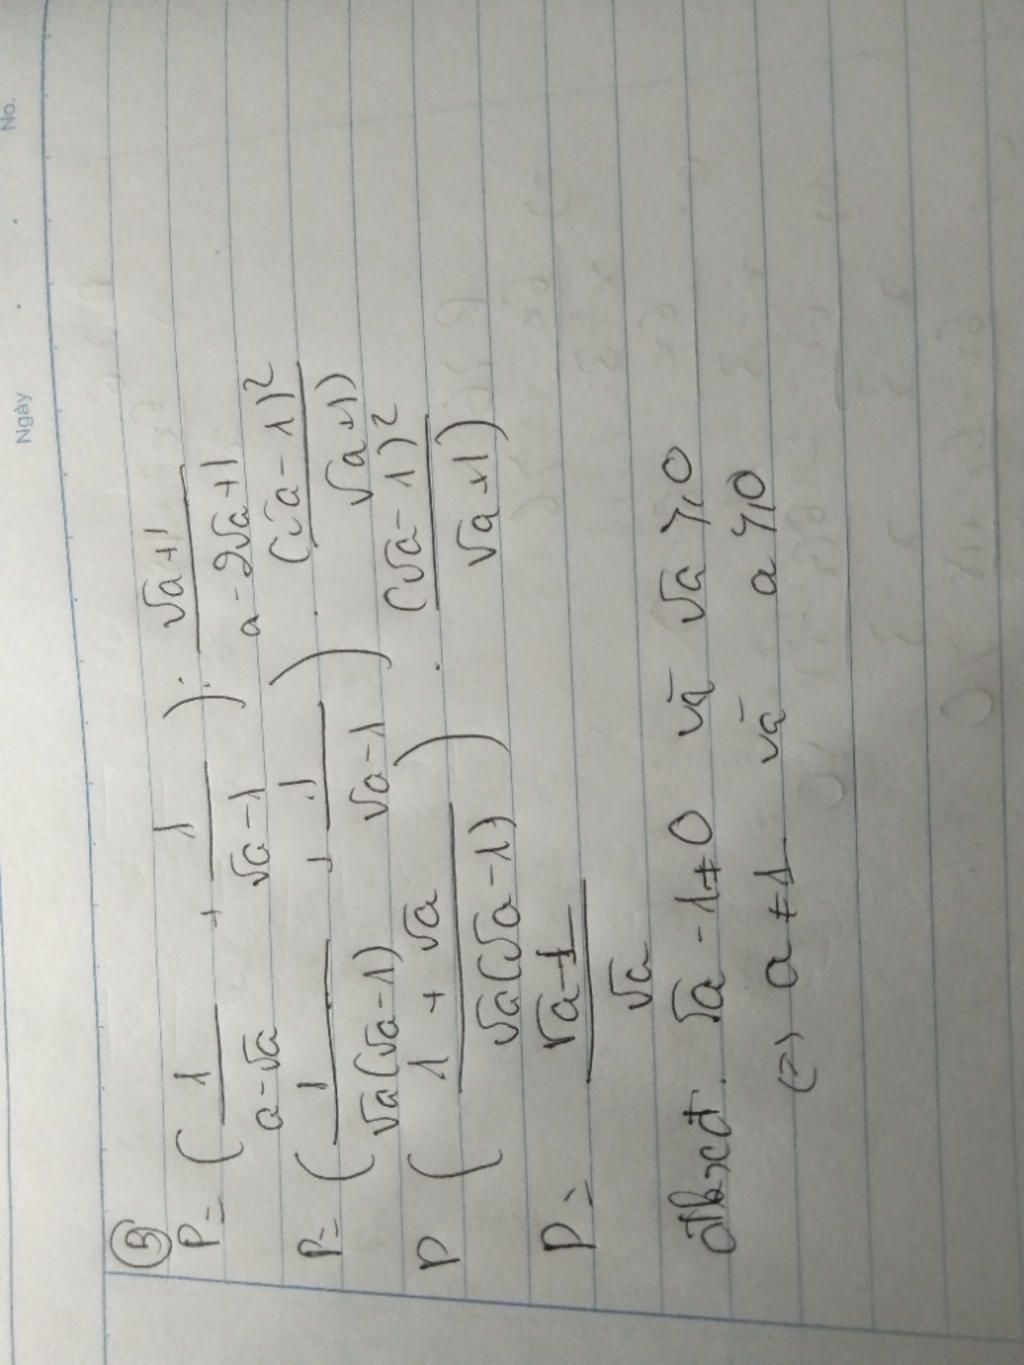 No.
Ngày
5
P = ( 1/(a-√a) + 1/(√a-1) ) : (√a+1)/(a-2√a+1)
P = ( 1/(√a(√a-1)) + 1/(√a-1) ) . (√a-1)²/(√a+1)
P ( (1+√a)/(√a(√a-1)) ) . (√a-1)²/(√a+1)
P = (√a-1)/√a
Đkxđ √a - 1 ≠ 0 và √a ≥ 0
(=) a ≠ 1 và a ≥ 0